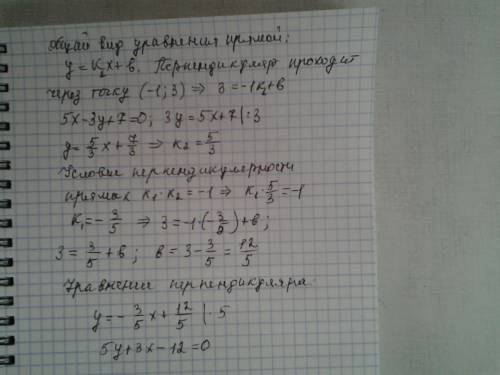 Общий вид уравнения прямой:
y = K₂x + b. Перпендикуляр проходит
через точку (-1; 3) ⇒ 3 = -1K₁ + b
5x - 3y + 7 = 0; 3y = 5x + 7 |:3
y = 5/3 x + 7/3 ⇒ K₂ = 5/3
Условие перпендикулярности
прямых K₁ · K₂ = -1 ⇒ K₁ · 5/3 = -1
K₁ = - 3/5 ⇒ 3 = -1 · (- 3/5) + b;
3 = 3/5 + b; b = 3 - 3/5 = 12/5
Уравнение перпендикляра:
y = - 3/5 x + 12/5 | · 5
5y + 3x - 12 = 0